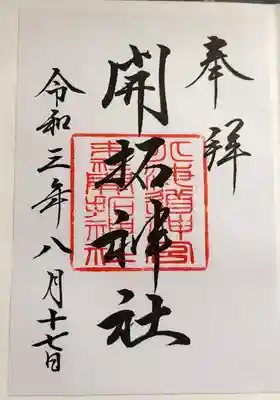 奉拝
開拓神社
令和三年八月十七日